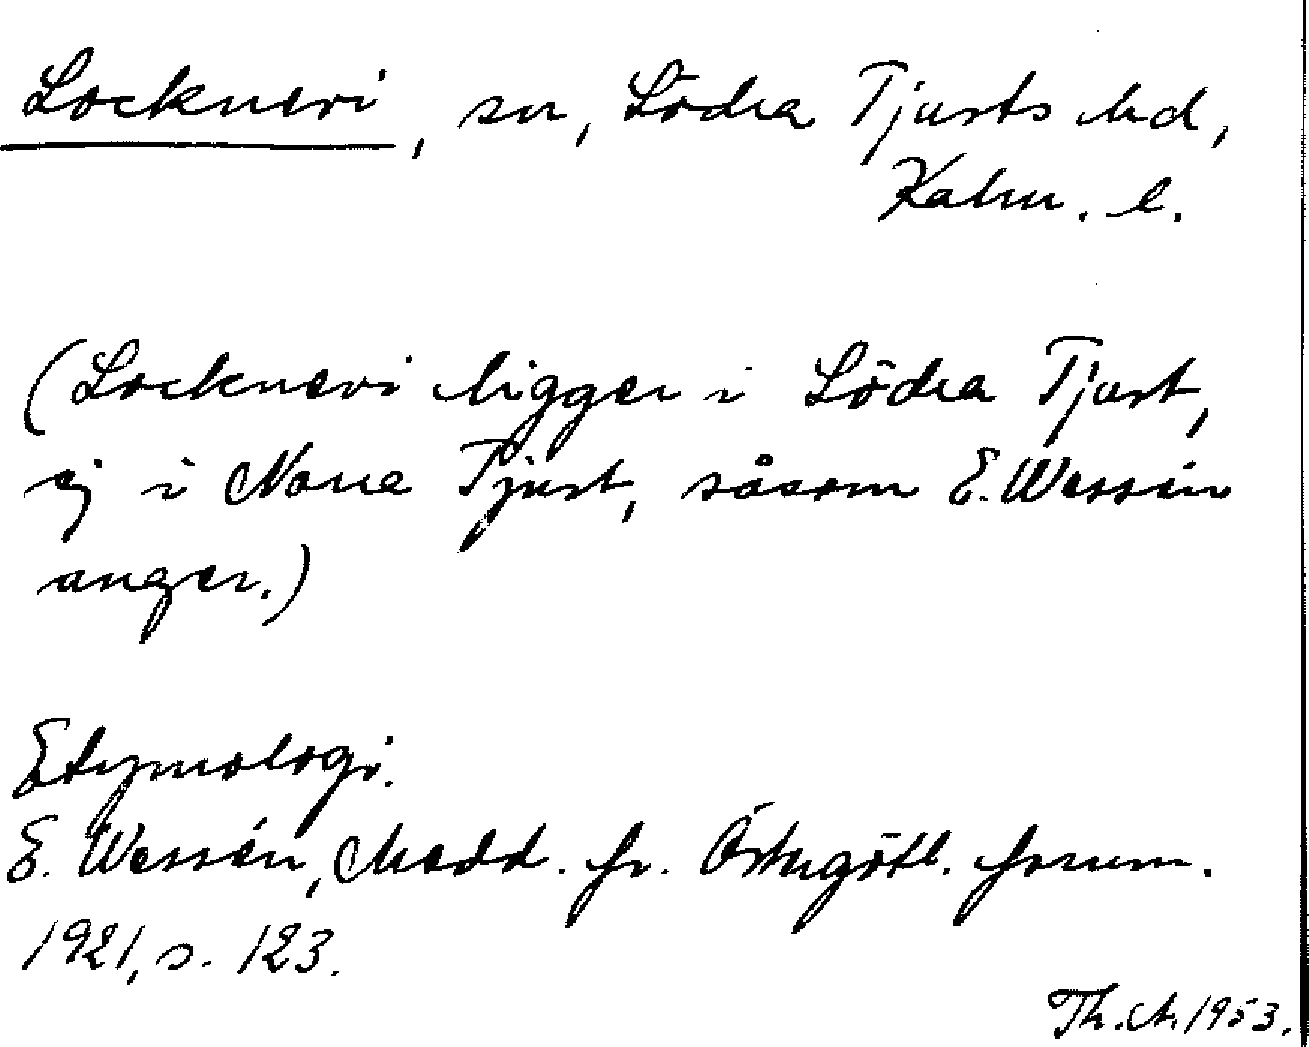 Locknevi, sn, Södra Tjusts hd,
Kalm. l.
(Locknevi ligger i Södra Tjust,
ej i Norra Tjust, såsom E. Wessén
anger.)
Etymologi.
E. Wessén, Medd. fr. Östergötl. fornm.
1921, s. 123.
Th. A. 1953.